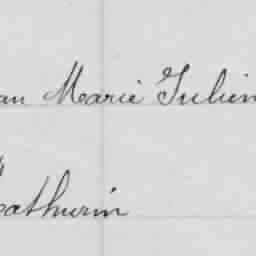 an Marie Julien
athurin